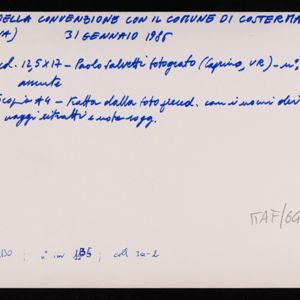 DELLA CONVENZIONE CON IL COMUNE DI COSTERMA
A) 31 GENNAIO 1985
ed. 12,5X17 - Paolo Salvetti fotografo (Caprino, VR) - n°
assente
copia A4 - Tratta dalla foto preced. con i nomi dei
naggi ritratti e note sogg.
MAF/6G
130 ; n° inv 135 ; coll 3a-2